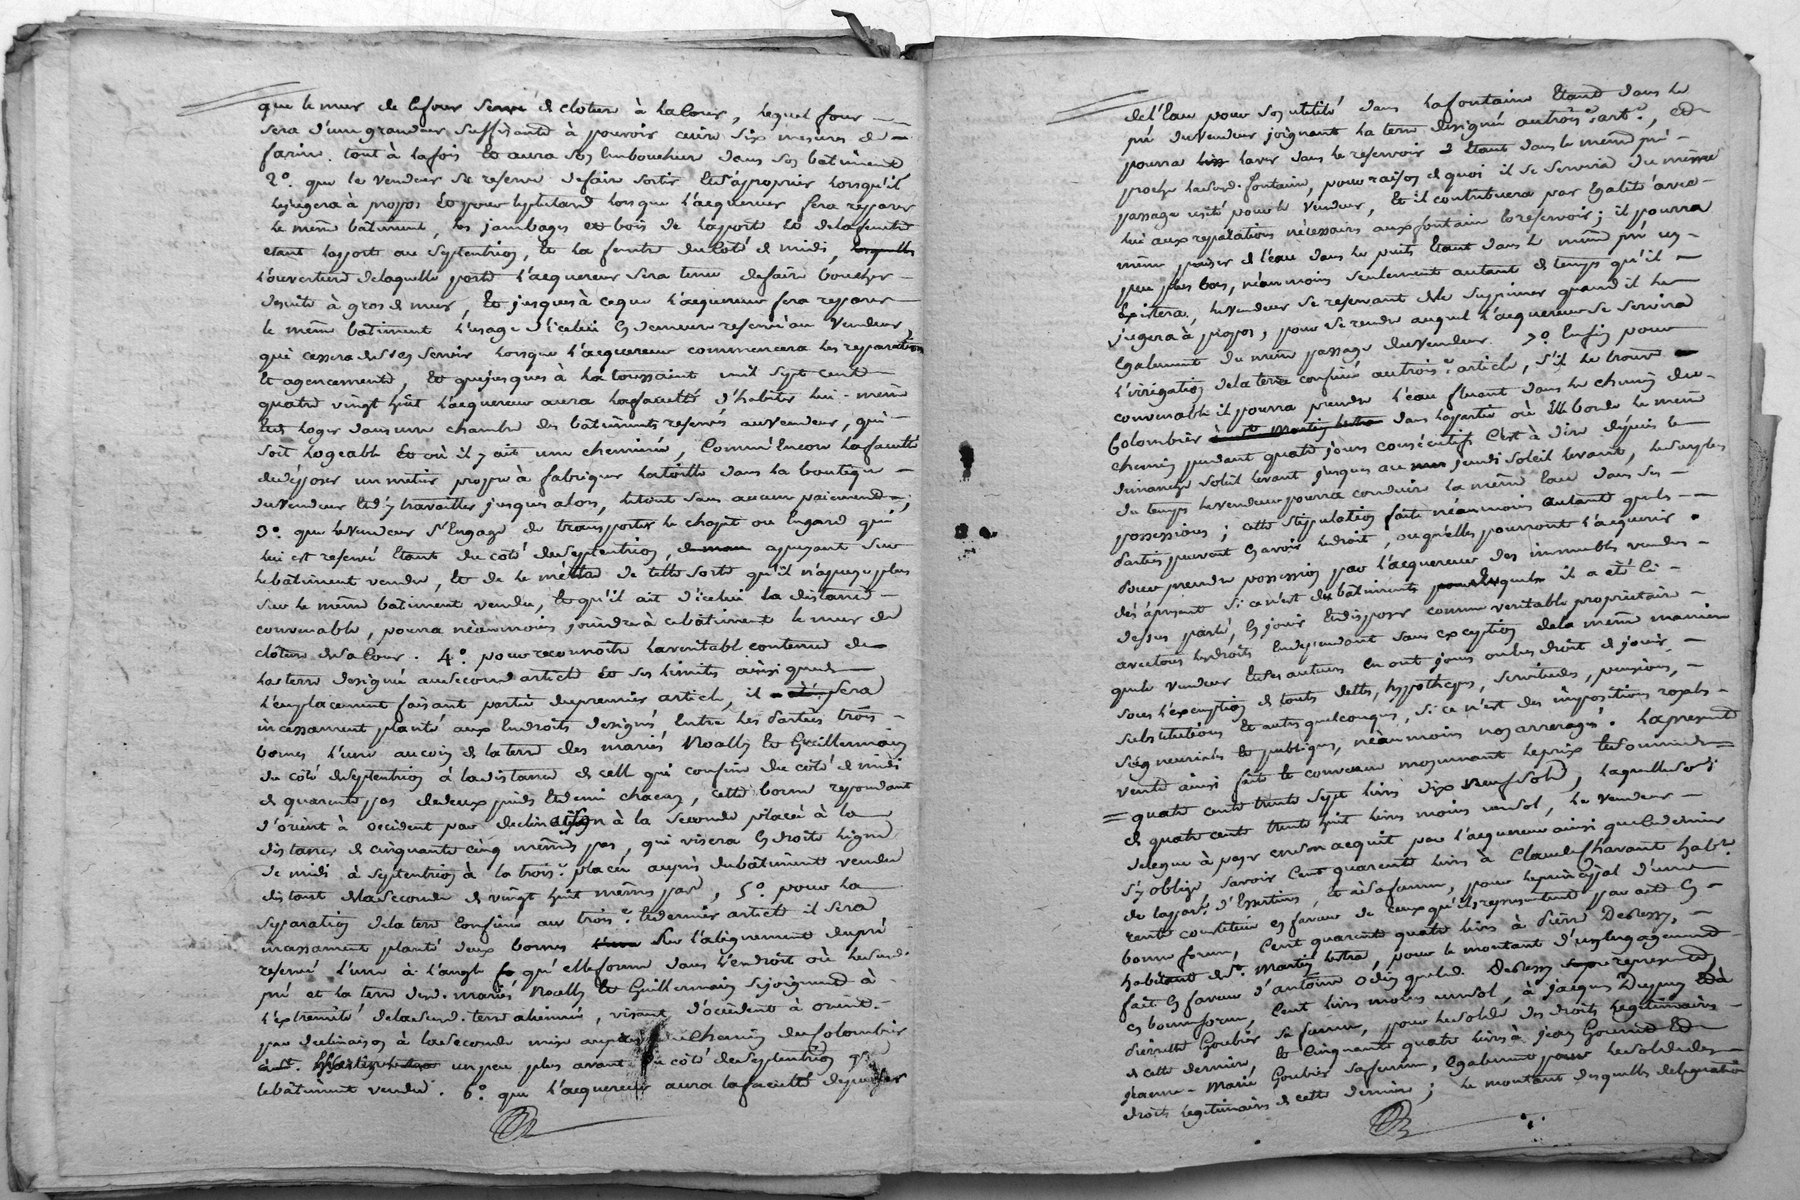 que le mur de le four serve de cloture à la Cour, lequel four
sera d'une grandeur suffisante à pouvoir cuire six mesures de
farine tout à la fois et aura son Embouchure dans son bâtiment
2.° que le vendeur se reserve de faire sortir et s'aproprier lorsqu'il
le jugera à propos et pour le plutard lorsque l'acquereur fera reparer
le même bâtiment, les jambages et bois de la porte et de la fenetre
etant la porte au septentrion, et la fenetre du Coté de midi, lesquelles
l'ouverture de laquelle porte l'acquereur sera tenu de faire boucher
de suite à gros de mur, et jusques à ce que l'acquereur fera reparer
le même bâtiment l'usage d'icelui en demeure reservé au Vendeur,
qui cessera de s'en servir lorsque l'acquereur commencera les reparations
et agencements, et que jusques à la toussaint mil sept cent
quatre vingt huit l'acquereur aura la faculté d'habiter lui-même
et loger dans une chambre des bâtiments reservés au vendeur, qui
soit logeable et où il y ait une cheminée, Comme Encore la faculté
de déposer un metier propre à fabriquer la toille dans la boutique
du Vendeur et d'y travailler jusques alors, le tout sans aucun paiement;
3.° que le Vendeur s'Engage de transporter le chapit ou Engard qui
lui est reservé Etant du coté du septentrion, appuyant sur
le bâtiment vendu, et de le mettre de telle sorte qu'il n'apuye plus
sur le même bâtiment vendu, et qu'il ait d'icelui la distance
convenable, pourra néanmoins joindre à ce bâtiment le mur de
clôture de sa Cour. 4.° pour reconnoitre la veritable contenue de
la terre designée au second article et ses limites ainsi que de
l'emplacement faisant partie du premier article, il sera
incessamment planté aux Endroits designés Entre les Parties trois
bornes l'une au coin de la terre des mariés Noally et Guillermain
du côté du septentrion à la distance de celle qui confine du côté de midi
de quarente pas de deux pieds et demi chacun, cette borne repondant
d'orient à occident par declinaison à la seconde placée à la
distance de cinquante cinq mêmes pas, qui visera en droite ligne
de midi à septentrion à la trois.e placée auprès du bâtiment vendu
distant de la seconde de vingt huit mêmes pas, 5.° pour la
separation de la terre Confinée au trois.e et dernier article il sera
incessamment planté deux bornes l'une sur l'alignement du pré
reservé l'une à l'angle qu'elle forme dans l'endroit où led.
pré et la terre desd. mariés Noally et Guillermain se joignent à
l'extremité de lad. terre alienée, visant d'occident à orient
par declinaison à la seconde mise auprès du Chemin du Colombier
à S.t Martin lestra un peu plus avant du côté du septentrion que
le bâtiment vendu. 6.° que l'acquereur aura la faculté de puiser
de l'Eau pour son utilité dans la fontaine Etant dans le
pré du Vendeur joignant la terre designée au trois.e art.e, et
pourra laver dans le reservoir Etant dans le même pré
proche lad. fontaine, pour raison de quoi il se servira du même
passage usité pour le Vendeur, Et il contribuera par Egalité avec
lui aux reparations nécessaires aux fontaine et reservoir; il pourra
même puiser de l'eau dans le puits Etant dans le même pré un
peu plus bas, néanmoins seulement autant de temps qu'il
Existera, le Vendeur se reservant de le supprimer quand il le
jugera à propos, pour se rendre auquel l'acquereur se servira
Egalement du même passage du Vendeur. 7.° Enfin pour
l'irrigation de la terre confinée au trois.e article, s'il le trouve
convenable il pourra prendre l'eau fluant dans le chemin du
Colombier à S.t Martin lestra dans la partie où Elle borde le même
chemin pendant quatre jours consécutifs C'est à dire depuis le
dimanche soleil levant jusques au jeudi soleil levant, le surplus
du temps le vendeur pourra conduire la même Eau dans ses
possessions; cette stipulation faite néanmoins autant que les
Parties peuvent en avoir le droit, ou qu'elles pourront l'acquerir.
Pour prendre possession par l'acquereur des immeubles vendus
dès à present si ce n'est des bâtiments pour lesquels il a été ci
dessus parlé, en jouir et disposer comme veritable propriétaire
avec tous les droits En dependant sans exception de la même maniere
que le Vendeur et ses auteurs en ont joui ou eu droit de jouir,
sous l'exemption de toute dette, hypotheque, servitudes, pensions,
substitutions et autres quelconques, si ce n'est des impositions royales
seigneuriales et publiques, néanmoins non arreragés. La presente
vente ainsi faite et convenue moyennant le prix et somme de
quatre cent trente sept livres dix neuf sols, laquelle
de quatre cent trente huit livres moins un sol, le Vendeur
delegue à payer en son acquit par l'acquereur ainsi que ce dernier
s'y oblige, savoir Cent quarente livres à Claude Chavant hab.t
de la par.e d'Essertines et à sa femme, pour le principal d'une
rente constituée en faveur de ceux qu'ils representent par acte en
bonne forme, Cent quarente quatre livres à Pierre Deressy,
habitant de S.t Martin lestra, pour le montant d'un Engagement
fait en faveur d'antoine Odin que led. Deressy represente,
en bonne forme, Cent livres moins un sol, à Jacques Dupuy et à
Pierrette Goubier sa femme, pour le solde des droits legitimaires
de cette derniere et Cinquante quatre livres à jean Gourand et
jeanne-Marie Goubier sa femme, Egalement pour le solde des
droits legitimaires de cette derniere; le montant desquelles delegations